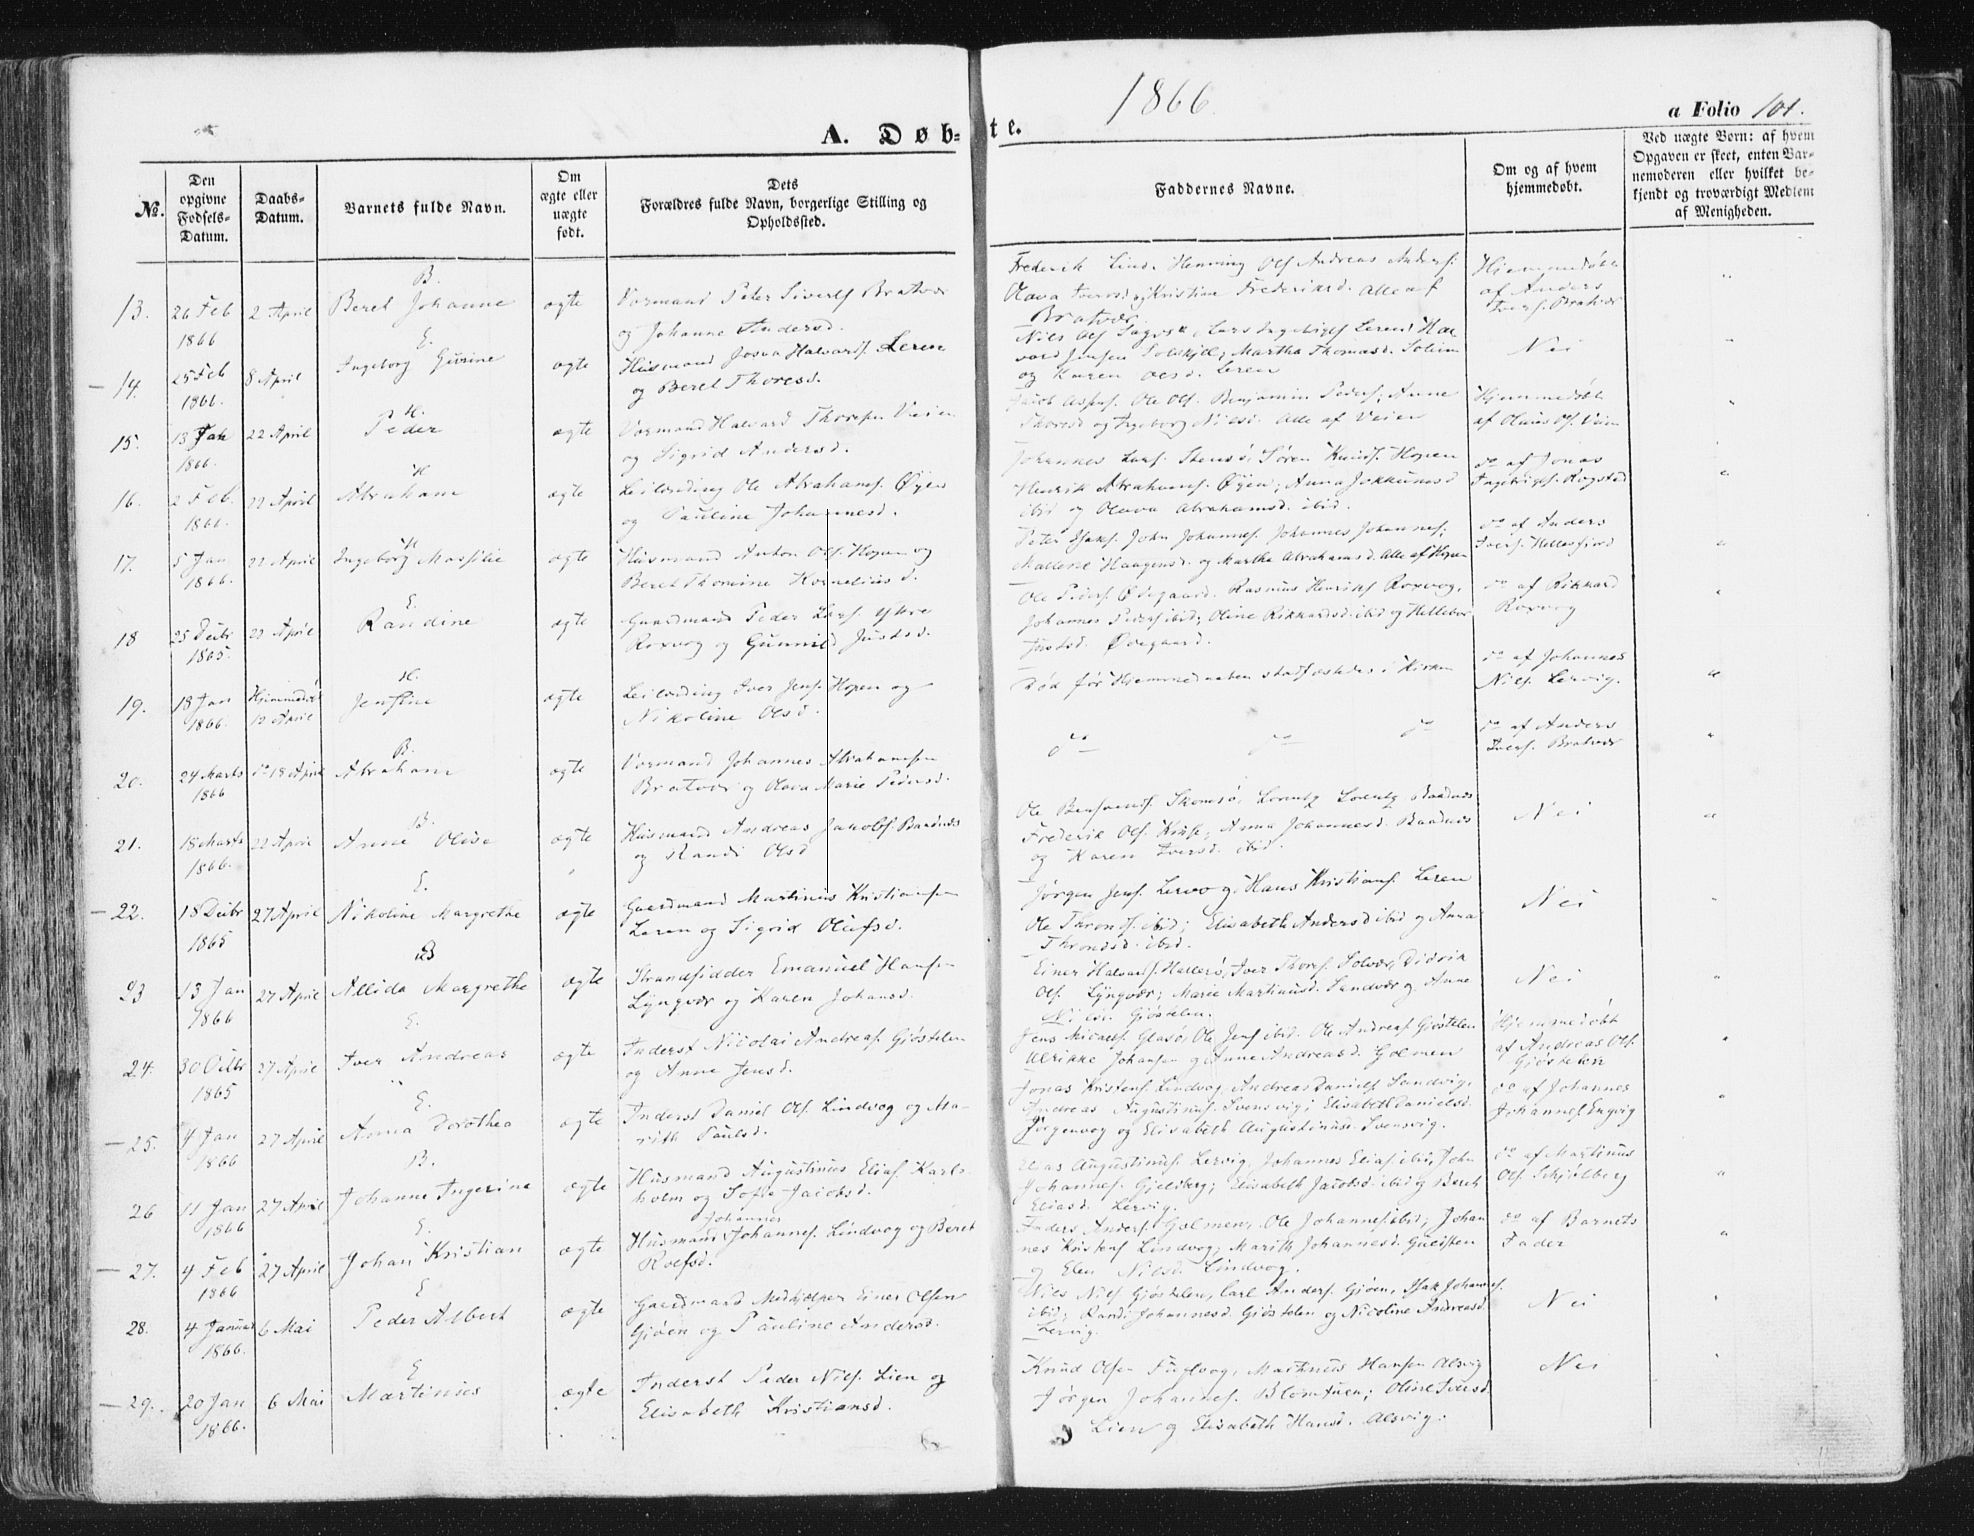 1866
A. Døb-te.
a Folio 101.
No.
Den opgivne Fødsels-Datum.
Daabs-Datum.
Barnets fulde Navn.
Om ægte eller uægte født.
Dets Forældres fulde Navn, borgerlige Stilling og Opholdssted.
Faddernes Navne.
Om og af hvem hjemmedøbt.
Ved uægte Børn: af hvem Opgaven er skeet, enten Barnemoderen eller hvilket bekjendt og troværdigt Medlem af Menigheden.
B.
13. 26 Feb 1866 2 April Beret Johanne ægte
og Johanne Andersd.
Frederik Lind. Henning Ols. Andreas Anders.
Olava Iversd. og Kristine Frederiksd. Alle af
Bratvær
Hjemmedøbt
af Anders
Ivers. Bratvær
E.
14. 25 Feb 1866. 8 April Ingeborg Gurine ægte
Husmand Josva Halvards. Leren
og Beret Thoresd.
og Karen Olsd. Leren
Nei
H.
15. 13 Jan 1866. 22 April Peder ægte
Halvard Thoresen Veien
og Sigrid Andersd.
Ole Ols. Benjamin Peders. Anne
Thoresd og Ingeborg Nilsd. Alle af Veien
Hjemmedøbt
af Olaus Ols. Veien
H
16. 2 Feb. 1866. 22 April Abraham ægte
Leilænding Ole Abrahams. Øyen
og Pauline Johannesd.
Johannes Lars. Stensø, Søren Knuds. Hopen
Henrik Abrahams. Øyen, Anna
ibid og Olava Abrahamsd. ibid.
do af Jonas
Ingebrigts.
H
17. 5 Jan 1866. 22 April Ingeborg ægte
Husmand Anton Ols. Hopen og
Beret Thomine Korneliusd.
Peter Isaks. John Johannes. Johannes Johannes.
Mallene Haagensd. og Martha Abrahamsd. Alle af Hopen
do af Anders
Ivers. Hellesfjord
E.
18 25 Decbr 1865. 22 April Randine ægte
Gaardmand Peder Lars. Ytre
Roxvog og Gunnild Justsd.
Ole Peders. Ødegaard. Rasmus Henriks Roxvog.
Johannes Peders. ibid; Oline Rikkardsd. ibid og Hellebor
Justsd. Ødegaard.
do af Rikkard
Roxvog
H.
19. 18 Jan 1866. Hjemmedøbt 12 April Jensine ægte
Leilænding Iver Jens. Hopen og
Nikoline Olsd.
Død før Hjemmedaaben stadfæstedes i Kirken
do af Johannes
Nils. Lervig.
B.
20. 24 Marts 1866 do 18 April Abraham ægte
Johannes Abrahamsen
Bratvær og Olava Marie Pedersd.
do do do
do af Anders
Ivers. Bratvær
B.
21. 18 Marts 1866. 22 April Anne Olise ægte
Husmand Andreas Jakobs. Baadnes
og Randi Olsd
Frederik Ols. Kruse, Anna Johannesd. Baadnes
og Karen Iversd. ibid.
Nei
E.
22. 18 Decbr 1865 27 April Nikoline Margrethe ægte
Gaardmand Martinus Kristiansen
Leren og Sigrid Olufsd.
Jørgen Jens. Lervog, Hans Kristians. Leren
Ole Thronds. ibid; Elisabeth Andersd ibid og Anna
Throndsd. ibid.
Nei
B
23 13 Jan 1866 27 April Allida Margrethe ægte
Strandsidder Emanuel Hansen
Lyngvær og Karen Johansd.
Einer Halvards. Hallerø, Iver Thores. Solvær, Didrik
Ols. Lyngvær; Marie Martinusd. Sandvær og Anne
Nilsd. Gjøstelen.
Nei
E.
24. 30 Octbr 1865 27 April Iver Andreas ægte
Inderst Nicolai Andreas. Gjøstelen
og Anne Jensd.
Jens Micaels. Glasø, Ole Jens. ibid. Ole Andreas. Gjøstelen
Ulrikke Johansen og Anne Andreasd. Golmen
Hjemmedøbt
af Andreas Ols.
Gjøstelen
E.
25. 4 Jan 1866 27 April Anna Dorothea ægte
Inderst Daniel Ols. Lindvog og Ma-
rith Paulsd.
Jonas Kristens. Lindvog, Andreas Daniels Sandvig,
Andreas Augustinus. Svensvig; Elisabeth Danielsd.
Jørgenvog og Elisabeth Augustinusd. Svensvig.
do af Johannes
Johannes. Engvig
B.
26 11 Jan 1866 27 April Johanne Ingerine ægte
Husmand Augustinus Elias. Karls-
holm og Sofie Jacobsd.
Elias Augustinus. Lervig, Johannes Elias. ibid, John
Johannes. Gjelberg; Elisabeth Jacobsd. ibid og Beret
Eliasd. Lervig.
do af Martinus
Ols. Schjølberg
E.
27. 4 Feb 1866 27 April Johan Kristian ægte
Johannes
Husmand Johannes. Lindvog og Beret
Rolfsd.
Anders Anders. Golmen, Ole Johannes. ibid; Johan
nes Kristens Lindvog, Marith Johannesd.
og Elen Nilsd. Lindvog.
do af Barnets
Fader
E
28. 4 Januar 1866. 6 Mai Peder Albert ægte
Gaardmand Medhjelper Einer Olsen
Gjøen og Pauline Andersd.
Nils Niels. Gjøstelen, Carl Anders. Gjøen, Isak Johannes.
ibid; Randi Johannesd. Gjøstelen og Nicoline Andreasd.
Lervig.
Nei
E
29. 20 Jan 1866. 6 Mai Martinus ægte
Inderst Peder Nils. Lien og
Elisabeth Kristiansd.
Knud Olsen Fuglvog, Martinus Hansen Alsvig
Jørgen Johannes. Blomtuen; Oline Iversd.
Lien og Elisabeth Hansd. Alsvig.
Nei